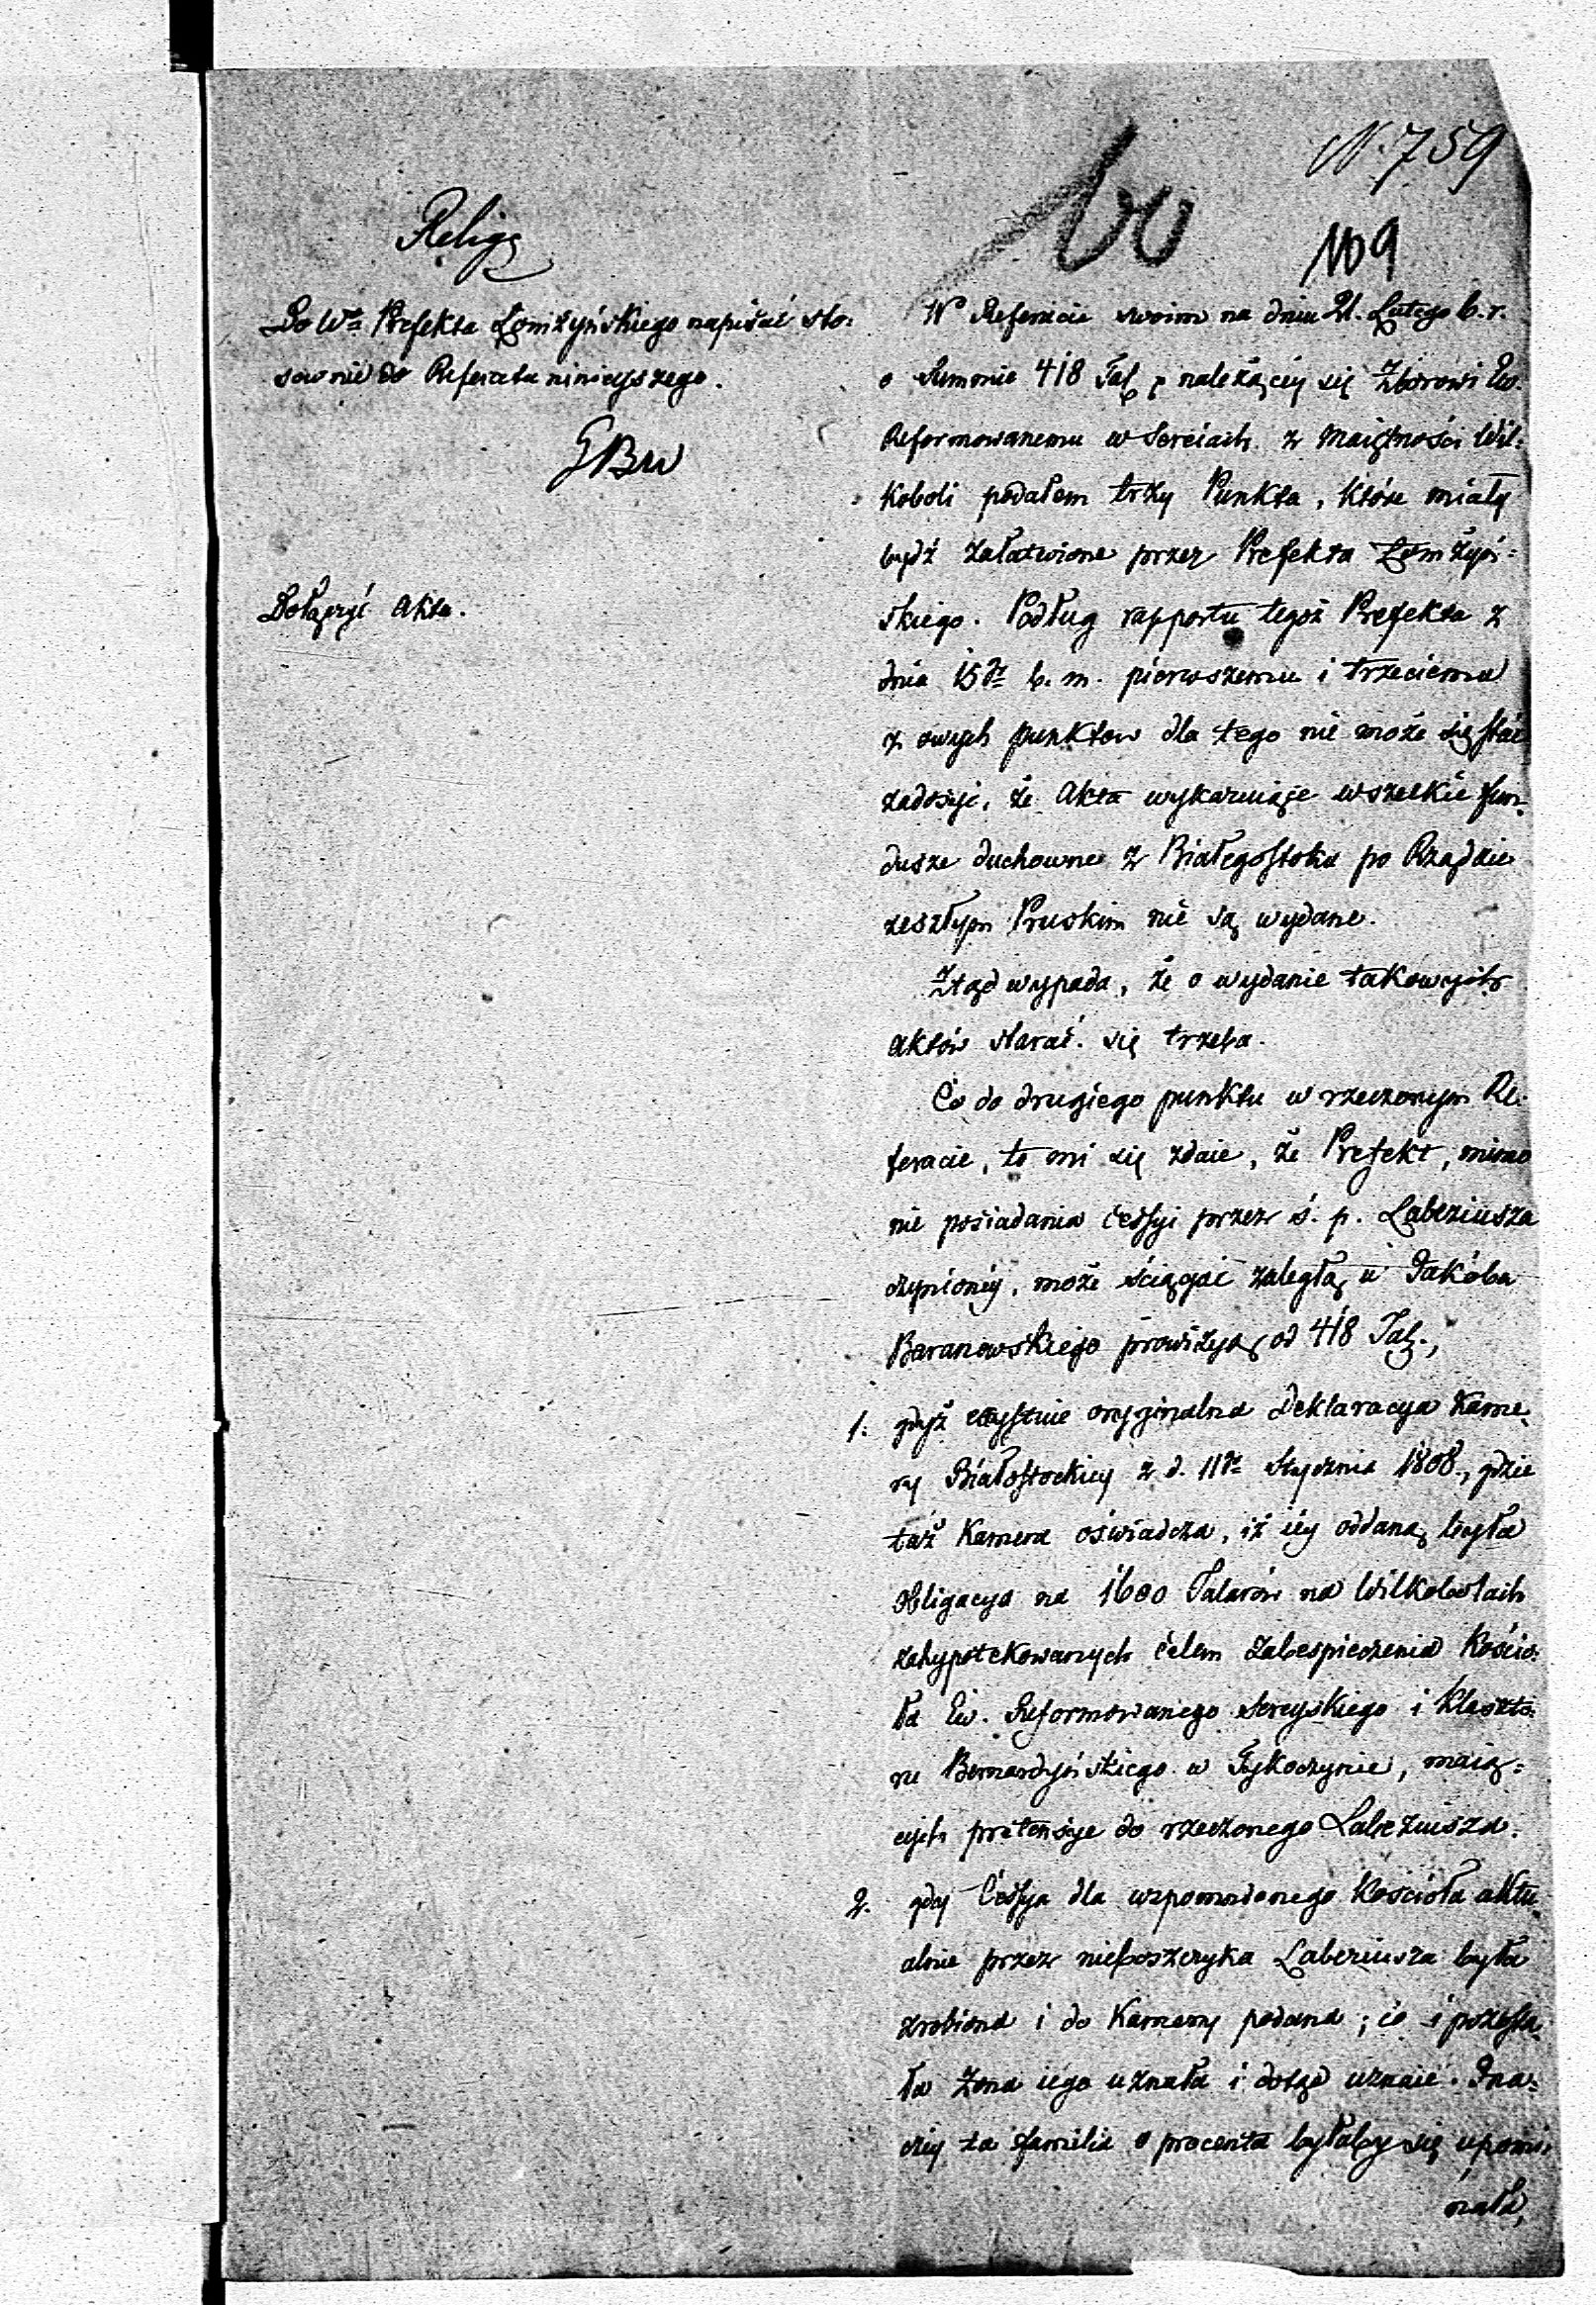 N. 759
60
109
Relig
Do Wo Prefekta Łomżyńskiego napisać sto:
sownie do Referatu ninieyszego.
GBW
Dołączyć Akta.
W Referacie swoim na dniu 21. Lutego b. r.
o Summie 418 Tal, należącey się Zborowi Ew.
Reformowanemu w Sereiach z Maiętności Wil:
koboli podałem trzy Punkta, które miały
bydź załatwione przez Prefekta Łomżyń=
skiego. Podług rapportu tegoż Prefekta z
dnia 15go b. m. pierwszemu i trzeciemu
z owych punktow dla tego nie może się stać
zadosyć, że Akta wykazuiące wszelkie fun:
dusze duchowne z Białegostoku po Rządzie
zeszłym Pruskim nie są wydane.
Ztąd wypada, że o wydanie takowych
Aktów starać się trzeba.
Co do drugiego punktu w rzeczonym Re:
feracie, to mi się zdaie, że Prefekt, mimo
nie posiadania Cessyi przez ś. p. Laberiusza
czynioney, może ściągać zaległą u Jakóba
Baranowskiego prowizyą od 418 Tal.,
1. gdyż exystuie oryginalna Deklaracya Kame:
ry Białostockiey z d. 11go Stycznia 1808., gdzie
taż Kamera oświadcza, iż iey oddaną była
obligacya na 1600 Talarów na Wilkobolach
zahypotekowanych celem zabespieczenia Kościo:
ła Ew. Reformowanego Sereyskiego i Klaszto:
ru Bernardyńskiego w Tykoczynie, maią=
cych pretensye do rzeczonego Laberiusza.
2. gdy Cessya dla wzpomnionego Kościoła aktu:
alnie przez nieboszczyka Laberiusza była
zrobiona i do Kamery podana; co i pozosta:
ła Żona iego uznała i dotąd uznaie. Ina:
czey ta familia o procenta byłaby się upomi:
nała,